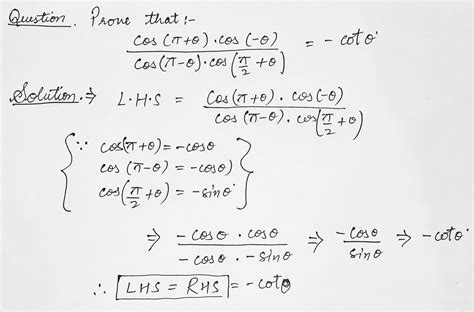 Question. Prove that :-
cos (π+θ) . cos (-θ) / cos (π-θ) . cos (π/2 + θ) = - cot θ.
Solution. ⇒ L.H.S = cos (π+θ) . cos (-θ) / cos (π-θ) . cos (π/2 + θ)
{ ∵ cos(π+θ) = -cosθ
cos (π-θ) = -cosθ)
cos(π/2 + θ) = -sinθ. }
⇒ -cosθ . cosθ / -cosθ . -sinθ ⇒ -cosθ / sinθ ⇒ -cotθ.
∴ LHS = RHS = -cotθ